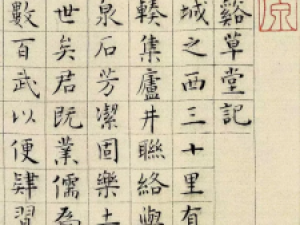 谿草堂記
城之西三十里有
輳集廬井聯絡與
泉石芳潔固樂土
世矣君既業儒為
數百武以便肄習